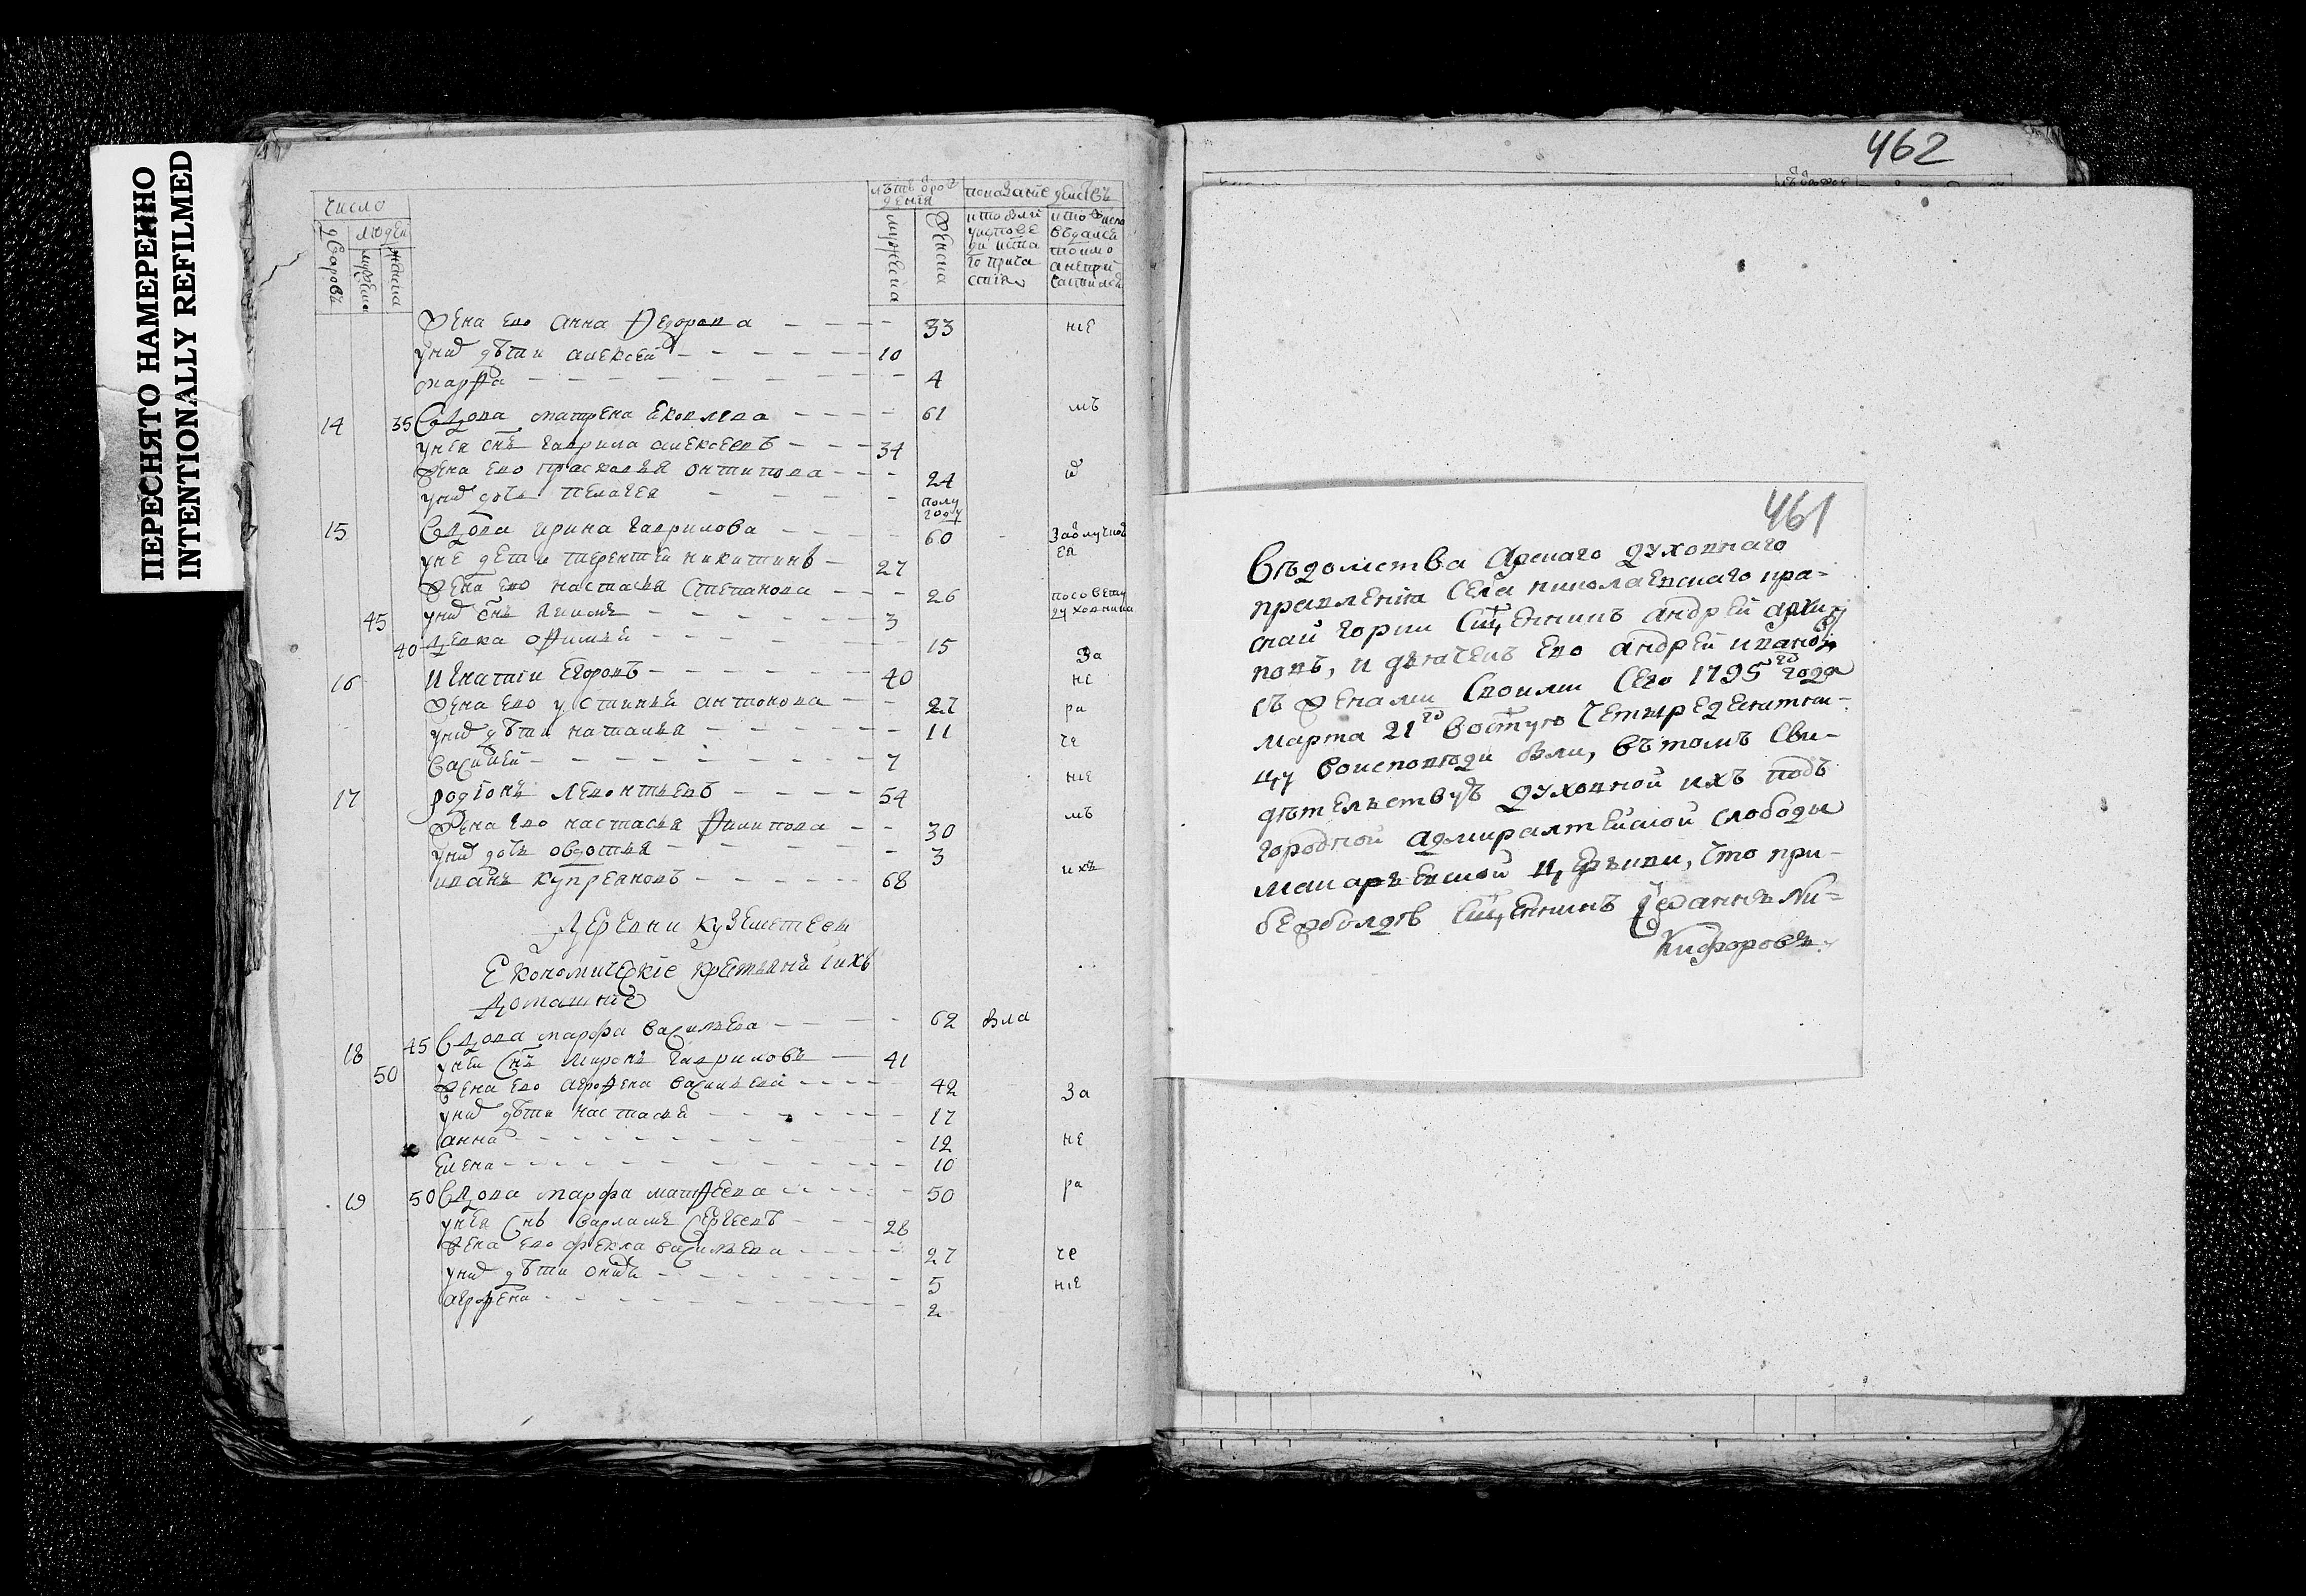 ПЕРЕСНЯТО НАМЕРЕННО
INTENTIONALLY REFILMED
число
дворовъ
людей
мужеска
женска
лѣтъ врож
денія
показаніе действъ
мужеска
женска
кто были
уисповѣ
ди исвта
го прича
стія
кто
исповѣдался
токмо
а непри
частился
жена ево Анна Федорова 33 ніе
унихъ дѣти алексей 10
марфа 4
14 35 Вдова матрена Яковлева 61 мъ
унея снъ гаврила алексеевъ 34
жена ево прасковья онтипова 24 ѿ
унихъ дочь пелагея полу году
15 Вдова ирина гаврилова 60 Заѿлучкой
ея
унее дети терентей никитинъ 27
жена ево настасья степанова 26 посовету
духовника
45 унихъ снъ якимъ 3
40 девка офимья 15 За
16 Игнатии Егоровъ 40 не
жена ево устинья антонова 27 ра
унихъ дѣти наталья 11 че
василей 7 ніе
17 родіонъ Левонтьевъ 54
жена ево настасья филипова 30 мъ
унихъ дочь овдотья 3
иванъ куприяновъ 68 ихъ
Деревни куземетево
Економическіе крестьяне iихъ
домашніе
18 45 Вдова марфа васильева 62 была
50 унея снъ миронъ гавриловъ 41
жена ево агрофена васильева 42 За
унихъ дѣти настасья 17
анна 12 не
елена 10
19 50 Вдова марфа матфеева 50 ра
унея снъ варламъ сергеевъ 28
жена ево фекла васильева 27 че
унихъ дѣти 5 ніе
агрофена 2
462
461
Вѣдомства Арскаго духовнаго
правленія села николаевскаго пра-
скай гории сщенникъ андрей архи
повъ, и дьячекъ ево андрей ивановъ
съ женами своими сего 1795го года
марта 21го востую четыредесятни-
цу воисповѣди были, вътомъ сви-
дѣтельствуетъ духовной ихъ подъ
городной адмиралтейской слободы
макарьевской церькви, что при-
бежболдѣ сщенникъ Іоаннъ Ни=
Кифоровъ.